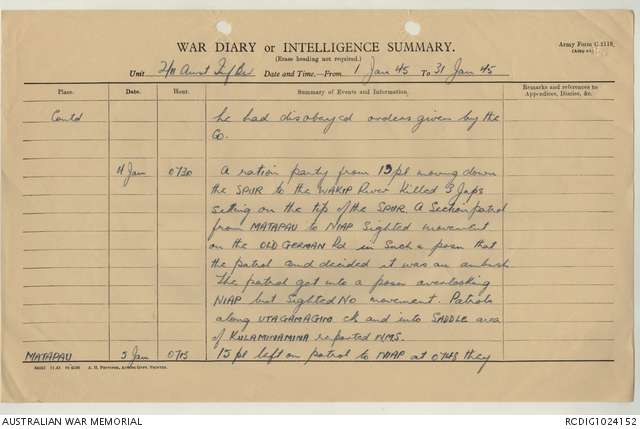 WAR DIARY or INTELLIGENCE SUMMARY.
(Erase heading not required.)
Army Form C.2118.
Unit 2/11 Aust Inf Bn Date and Time.—From 1 Jan 45 To 31 Jan 45
Place. Date. Hour. Summary of Events and Information. Remarks and references to Appendices, Diaries, &c.
Contd he had disobeyed orders given by the
Co.
4 Jan 0730 A ration party from 13 pl moving down
the SPUR to the WAKIP River killed 3 Japs
sitting on the tip of the SPUR. A Section patrol
from MATAPAU to NIAP sighted movement
on the OLD GERMAN Rd in such a posn that
the patrol comd decided it was an ambush
The patrol got into a posn overlooking
NIAP but sighted No movement. Patrols
along UTAGAMAGIM ck and into SADDLE area
of KULAMINAMINA reported NMS.
MATAPAU 5 Jan 0715 15 pl left on patrol to NIAP at 0745 they
AUSTRALIAN WAR MEMORIAL
RCDIG1024152